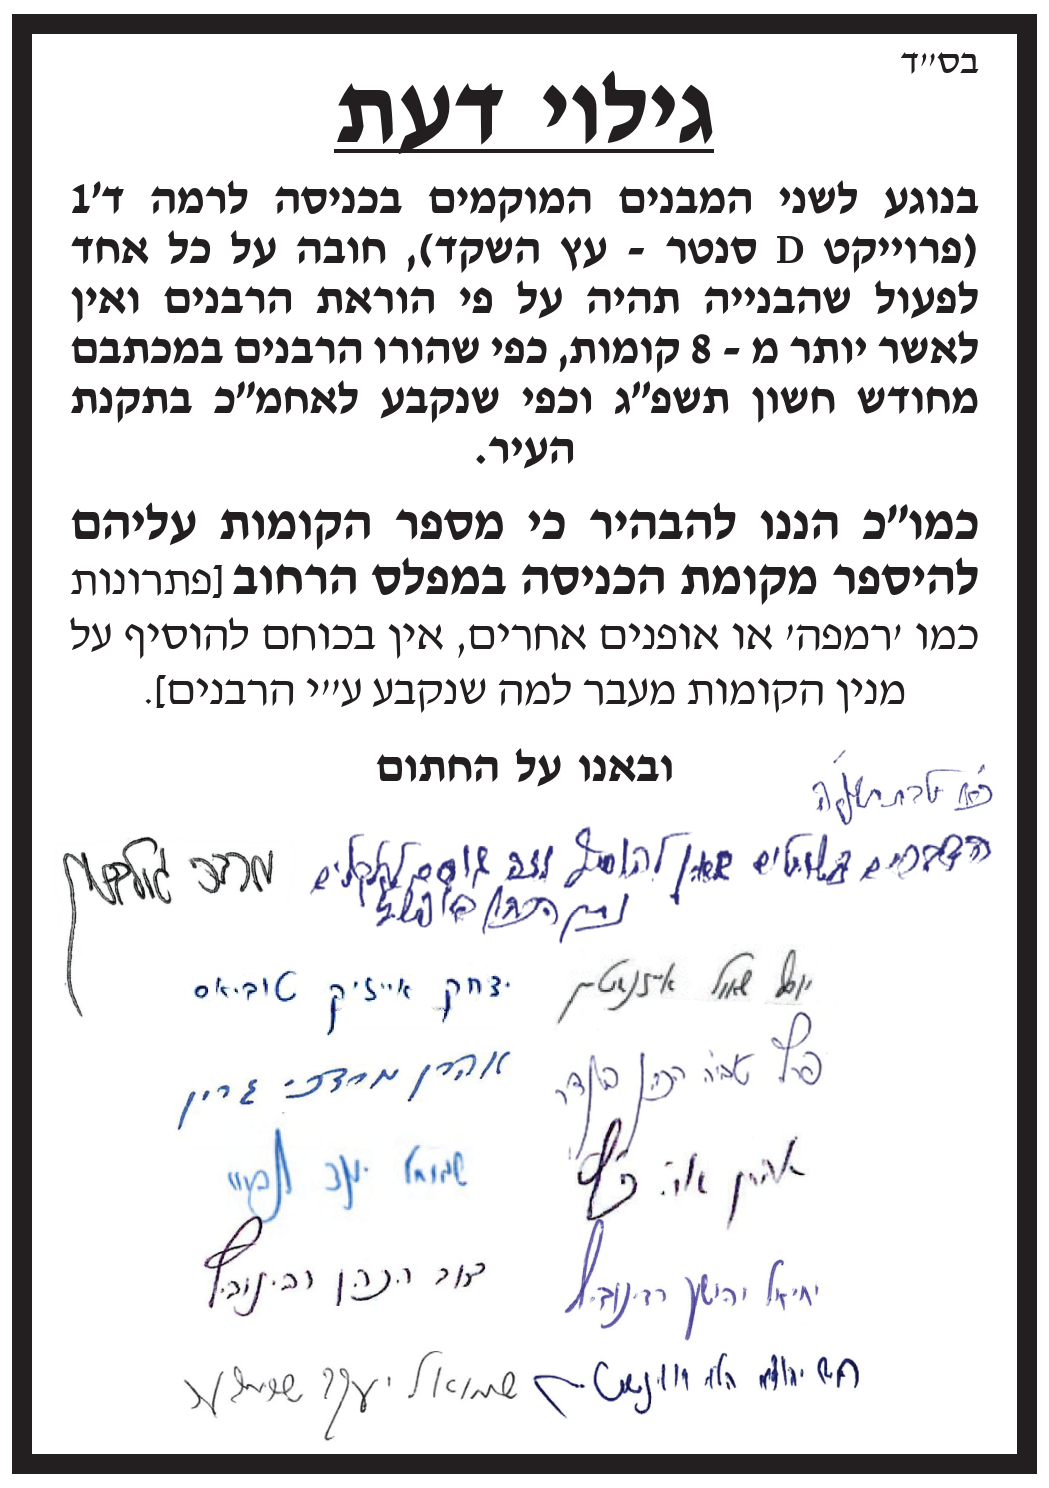 בס״ד
גילוי דעת
בנוגע לשני המבנים המוקמים בכניסה לרמה ד'1
(פרוייקט D סנטר - עץ השקד), חובה על כל אחד
לפעול שהבנייה תהיה על פי הוראת הרבנים ואין
לאשר יותר מ - 8 קומות, כפי שהורו הרבנים במכתבם
מחודש חשון תשפ״ג וכפי שנקבע לאחמ״כ בתקנת
העיר.
כמו״כ הננו להבהיר כי מספר הקומות עליהם
להיספר מקומת הכניסה במפלס הרחוב [פתרונות
כמו 'רמפה' או אופנים אחרים, אין בכוחם להוסיף על
מנין הקומות מעבר למה שנקבע ע״י הרבנים].
ובאנו על החתום
טבת תשפ״ה
הדברים שאין להוסיף
מרדכי
שאול
יצחק אייזיק טוביאס
טביה הכהן
אהרן מרדכי גרין
אהרן
שמואל
יחיאל יהושע רבינוביץ
הכהן רבינוביץ
יהודה
שמואל יעקב